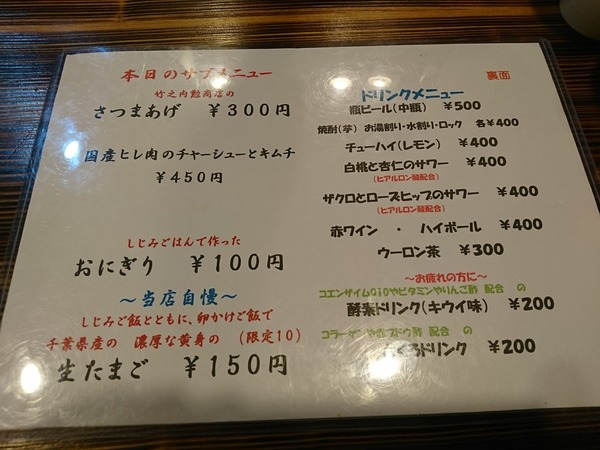 本日のサブメニュー
竹之内勲商店の
さつまあげ ￥３００円
国産ヒレ肉のチャーシューとキムチ
￥４５０円
しじみごはんで作った
おにぎり ￥１００円
～当店自慢～
しじみご飯とともに、卵かけご飯で
千葉県産の 濃厚な黄身の （限定10）
生たまご ￥１５０円
裏面
ドリンクメニュー
瓶ビール（中瓶） ￥500
焼酎（芋） お湯割り・水割り・ロック 各￥400
チューハイ（レモン） ￥400
白桃と杏仁のサワー ￥400
（ヒアルロン酸配合）
ザクロとローズヒップのサワー ￥400
（ヒアルロン酸配合）
赤ワイン ・ ハイボール ￥400
ウーロン茶 ￥300
～お疲れの方に～
コエンザイムQ10やビタミンやりんご酢 配合 の
酵素ドリンク（キウイ味） ￥200
コラーゲンや赤ブドウ酢 配合 の
ざくろドリンク ￥200